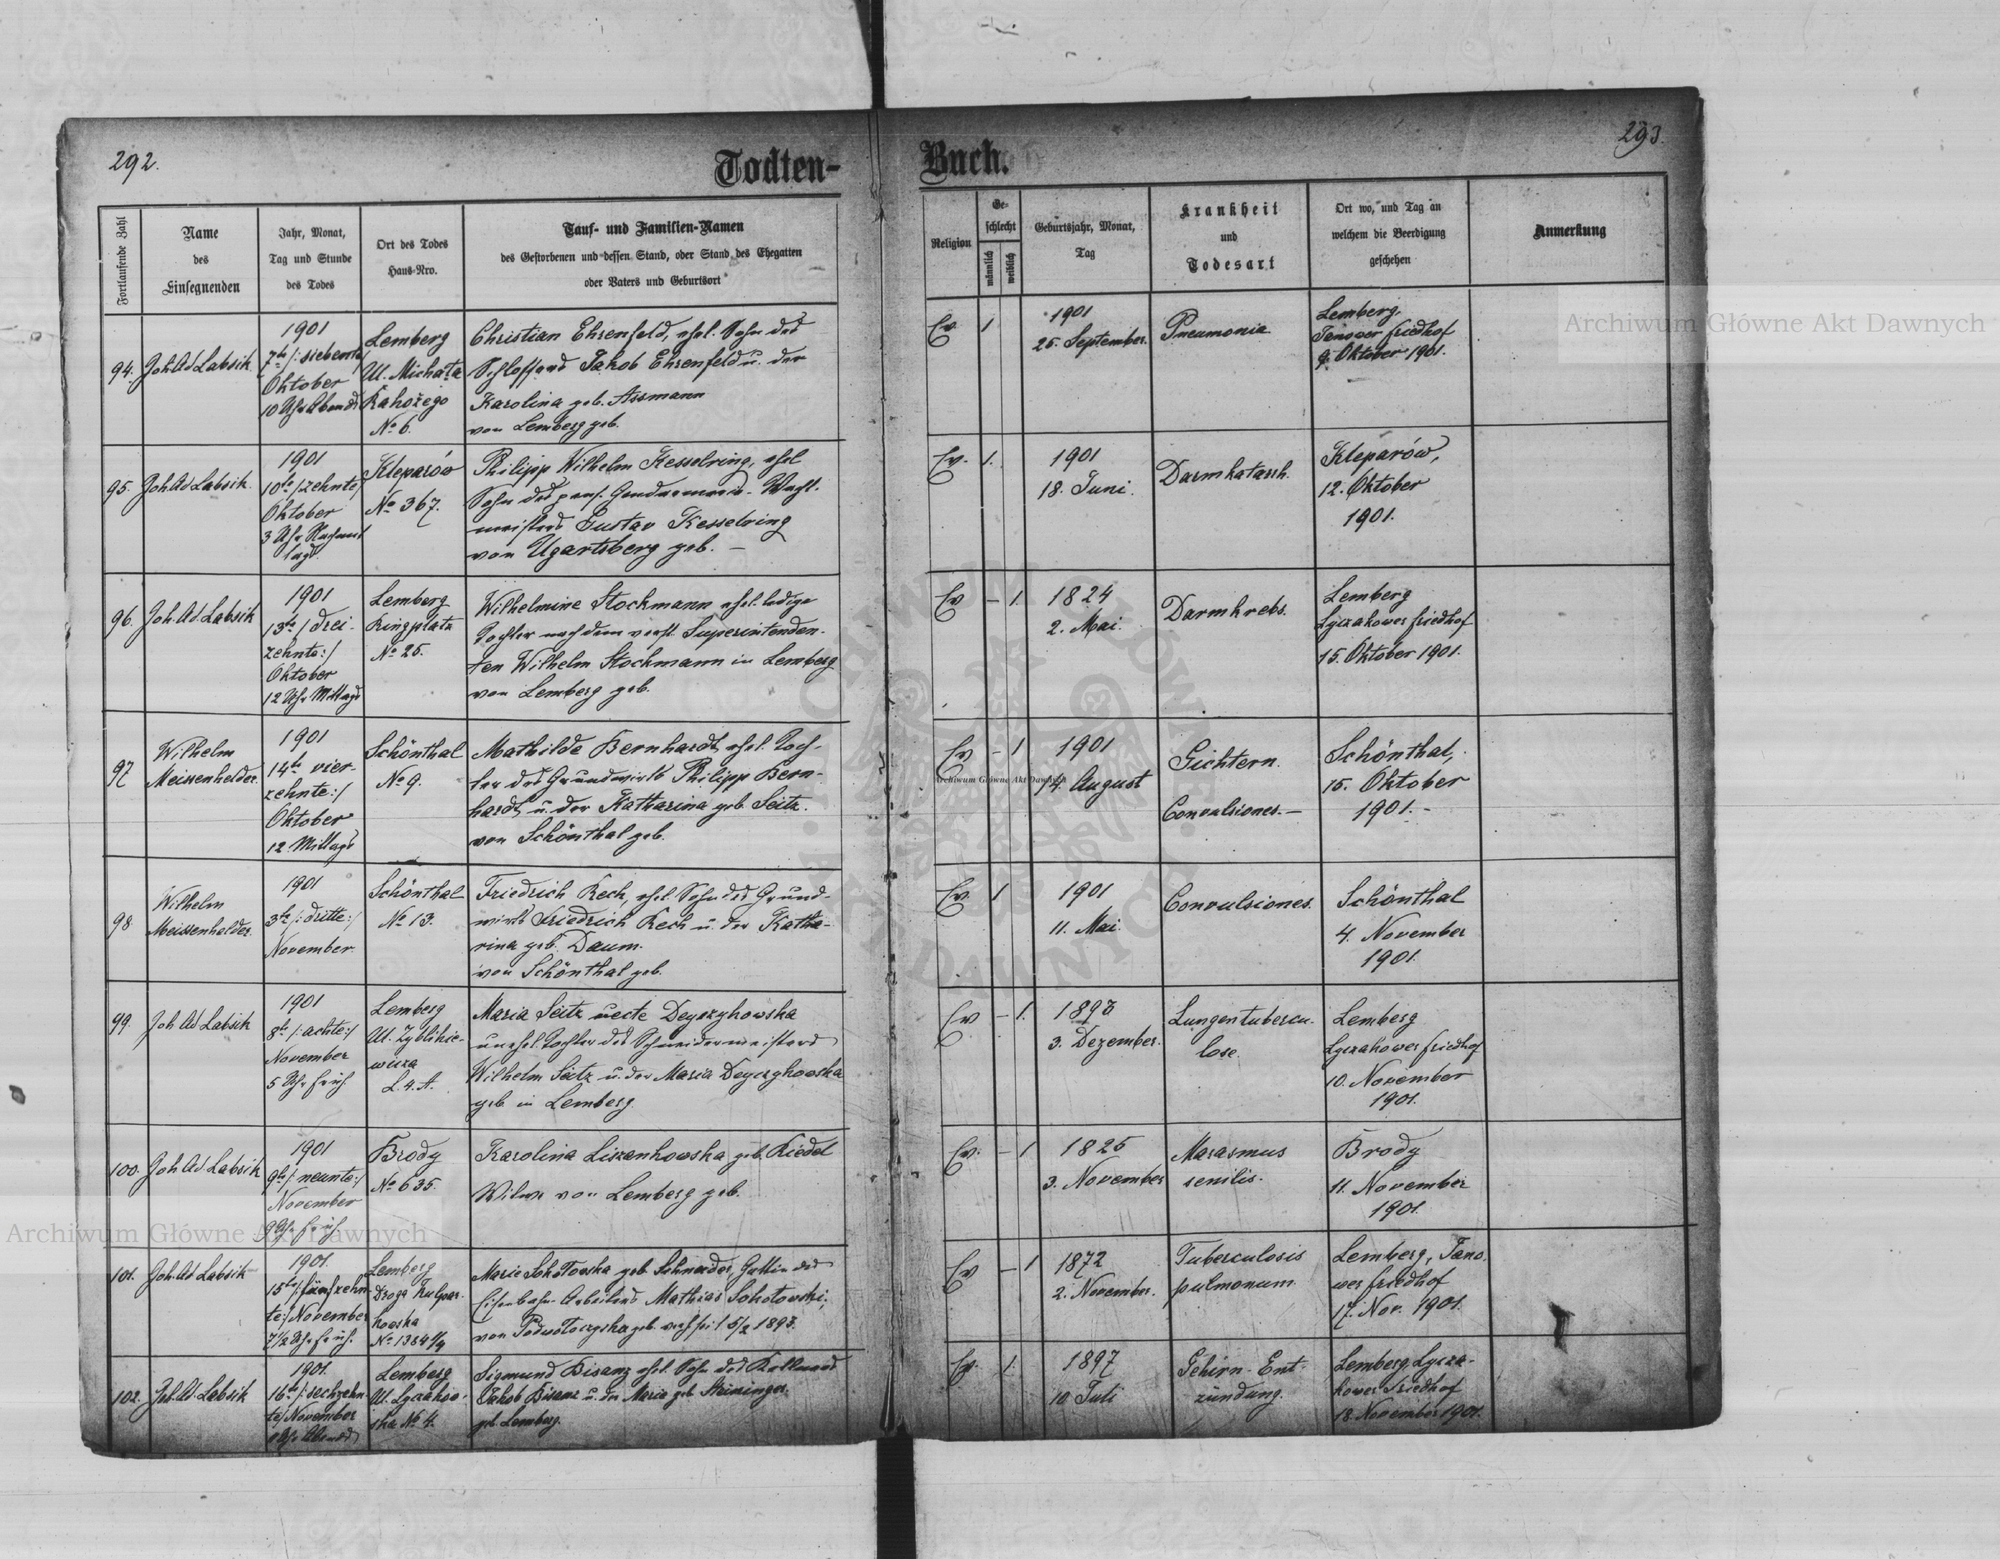 292.
Todten-
Fortlaufende Zahl
Name
des
Einsegnenden
Jahr, Monat,
Tag und Stunde
des Todes
Ort des Todes
Haus-Nro.
Tauf- und Familien-Namen
des Gestorbenen und dessen Stand, oder Stand des Ehegatten
oder Vaters und Geburtsort
94.
Joh. Ad Labsik
1901
7te /: siebente/
Oktober
10 Uhr Abends
Lemberg
Ul. Michała
No 6.
Christian Ehrenfeld, ehel. Sohn des
Schlossers Jakob Ehrenfeld u. der
Karolina geb. Assmann
von Lemberg geb.
95.
Joh Ad Labsik
1901
10te /: zehnte/
Oktober
3 Uhr Nachmit
tags.
Kleparów
No 367.
Philipp Wilhelm Kesselring, ehel
Sohn des pens. Gendarmerie-Wacht-
meisters Gustav Kesselring
von Ugartsberg geb. —
96.
Joh. Ad. Labsik
1901
13te / drei-
zehnte:/
Oktober
12 Uhr Mittags
Lemberg
Ringplatz
No 25.
Wilhelmine Stockmann ehel. ledige
Tochter nach dem verst. Superintenden-
ten Wilhelm Stockmann in Lemberg
von Lemberg geb.
97
Wilhelm
Meissenhelder.
1901
14te vier-
zehnte:/
Oktober
12. Mittags
Schönthal
No 9.
Mathilde Bernhardt, ehel. Toch-
ter des Grundwirts Philipp Bern-
hardt u. der Katharina geb Seitz.
von Schönthal geb.
98.
Wilhelm
Meissenhelder.
1901
3te /: dritte:/
November.
Schönthal
No 13.
Friedrich Rech, ehel. Sohn des Grund-
wirts Friedrich Rech u. der Katha-
rina geb. Daum.
von Schönthal geb.
99.
Joh Ad Labsik
1901
8te /: achte:/
November
5 Uhr früh.
Lemberg
Ul. Zyblikie-
wicza
L. 4. A.
Maria Seitz recte Deyczyhowska
unehel. Tochter des Schneidermeisters
Wilhelm Seitz u. der Maria Deyczyhowska
geb in Lemberg.
100.
Joh Ad Labsik
1901
9te /: neunte:/
November
9 Uhr früh.
Brody
No 635.
Karolina Liszankowska geb. Riedel
Witwe von Lemberg geb.
101.
Joh. Ad Labsik
1901.
15te /: fünfzehn-
te:/ November
7 1/2 Uhr früh.
Lemberg
droga Kulpar-
kowska
No 1384 1/4
Marie Sokołowska geb. Schneider, Gattin des
Eisenbahn-Arbeiters Mathias Sokołowski,
von Podwołoczyska geb.
102.
Joh. Ad Labsik
1901.
16te /: sechzehn-
te:/ November
Uhr Abends
Lemberg
Ul. Łyczakow-
ska No 4.
Sigmund Bisanz ehel. Sohn des
Jakob Bisanz u. der Maria geb. Steininger.
geb. Lemberg.
293.
Buch.
Religion
Ge-
schlecht
männlich
weiblich
Geburtsjahr, Monat,
Tag
Krankheit
und
Todesart
Ort wo, und Tag an
welchem die Beerdigung
geschehen
Anmerkung
Ev
1
1901
25. September.
Pneumonia
Lemberg.
Janower friedhof
9. Oktober 1901.
Ev.
1.
1901
18. Juni.
Darmkatarrh.
Kleparów,
12. Oktober
1901.
Ev
–
1.
1824
2. Mai.
Darmkrebs.
Lemberg
Lyczakower friedhof
15. Oktober 1901.
Ev
–
1
1901
14. August
Gichtern.
Convulsiones. —
Schönthal,
15. Oktober
1901. –
Ev.
1
1901
11. Mai.
Convulsiones.
Schönthal
4. November
1901.
Ev
–
1.
1893
3. Dezember.
Lungentubercu-
lose.
Lemberg
Lyczakower friedhof
10. November
1901.
Ev.
–
1
1825
3. November
Marasmus
senilis.
Brody
11. November
1901.
Ev
–
1
1872
2. November.
Tuberculosis
pulmonum.
Lemberg, Jano-
wer friedhof
17. Nov. 1901.
Ev.
1.
1897
10 Juli
Gehirn-Ent-
zündung.
Lemberg, Lycza-
kower Friedhof
18. November 1901.
Archiwum Główne Akt Dawnych
Archiwum Główne Akt Dawnych
Archiwum Główne Akt Dawnych